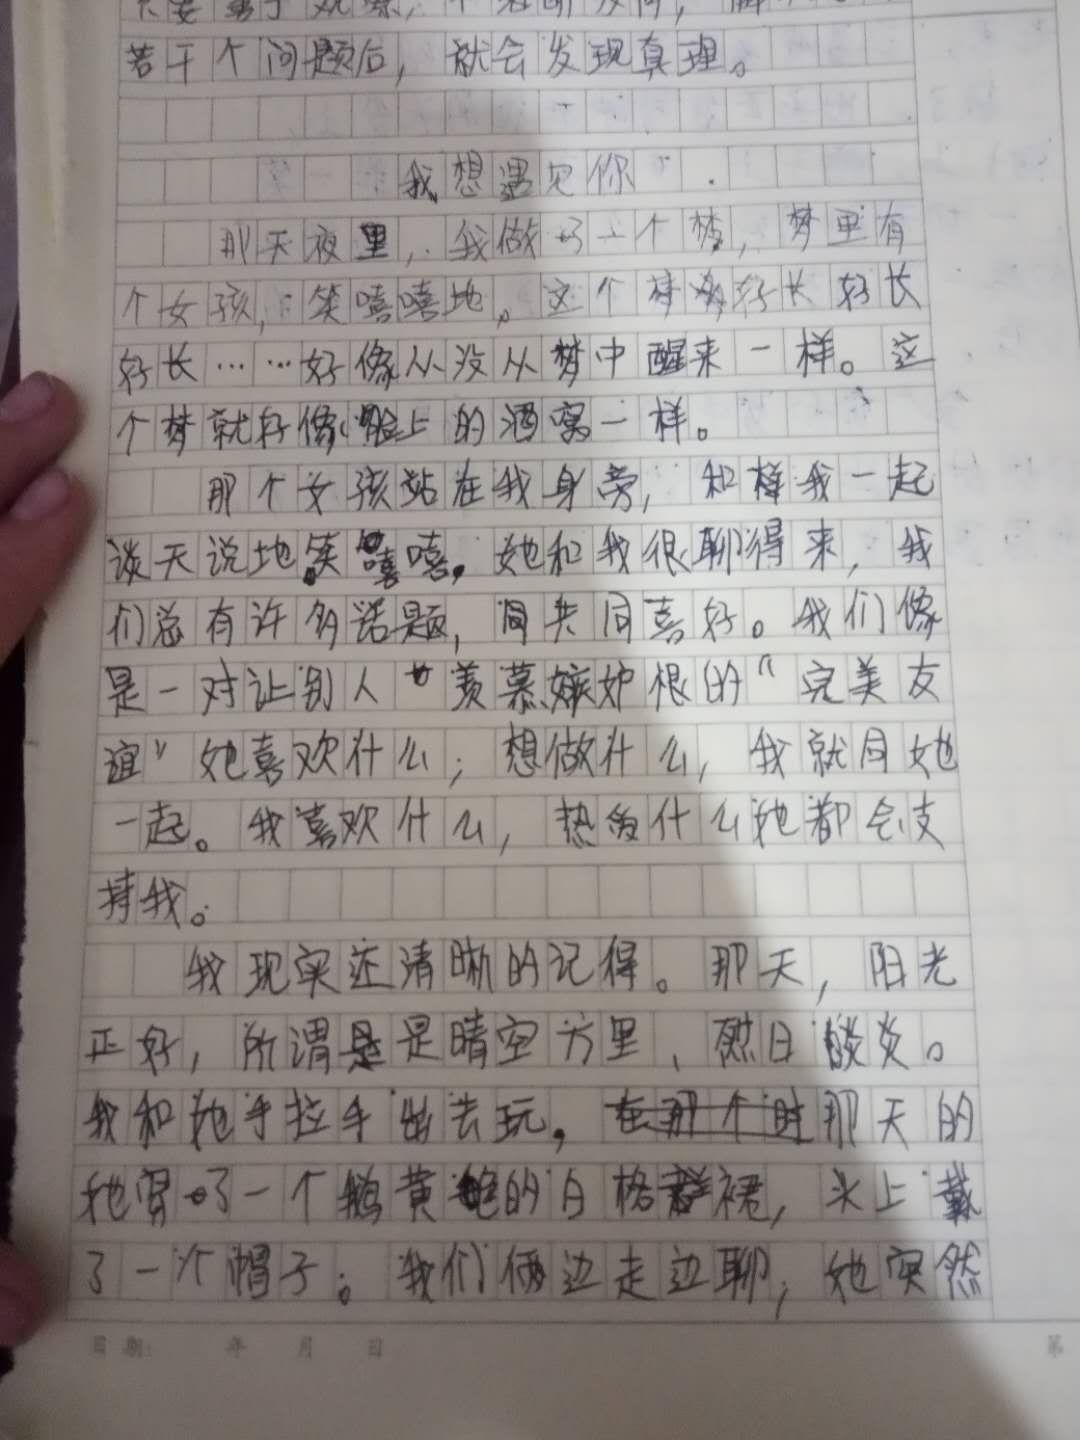 若干个问题后，就会发现真理。
我想遇见你
那天夜里，我做了一个梦，梦里有
个女孩，笑嘻嘻地。这个梦好长好长
好长……好像从没从梦中醒来一样。这
个梦就好像脸上的酒窝一样。
那个女孩站在我身旁，和我一起
谈天说地笑嘻嘻，她和我很聊得来，我
们总有许多话题，共同喜好。我们像
是一对让别人羡慕嫉妒恨的“完美友
谊”她喜欢什么；想做什么，我就同她
一起。我喜欢什么，热爱什么她都会支
持我。
我现实还清晰的记得。那天，阳光
正好，所谓是晴空万里、烈日炎炎。
我和她手拉手出去玩，那天的
她穿了一个鹅黄的白格裙，头上戴
了一个帽子。我们俩边走边聊，她突然
日期： 年 月 日
第